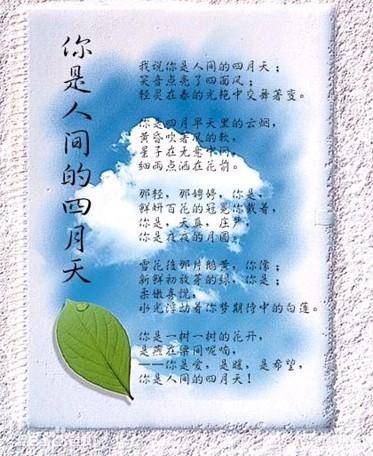 你是人间的四月天
我说你是人间的四月天；
笑音点亮了四面风；
轻灵在春的光艳中交舞着变。
你是四月早天里的云烟，
黄昏吹着风的软，
星子在无意中闪，
细雨点洒在花前。
那轻，那娉婷，你是，
鲜妍百花的冠冕你戴着，
你是，天真，庄严，
你是夜夜的月圆。
雪花后那片鹅黄，你像；
新鲜初放芽的绿，你是；
柔嫩喜悦，
水光浮动着你梦期待中的白莲。
你是一树一树的花开，
是燕在梁间呢喃，
——你是爱，是暖，是希望，
你是人间的四月天！